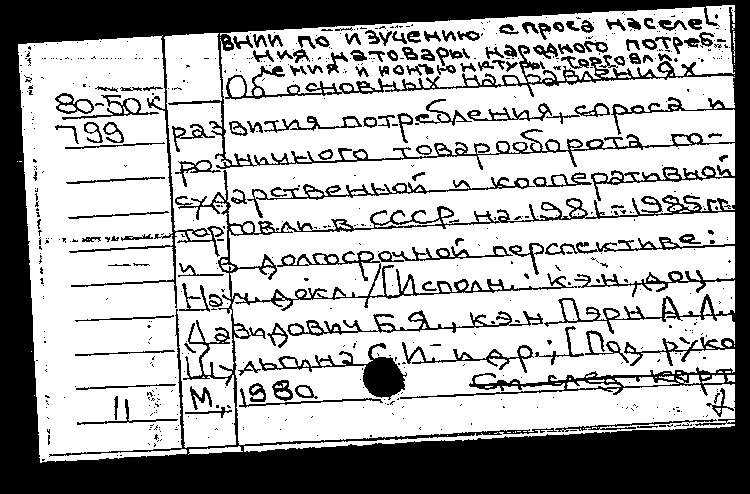 ВНИИ по изучению спроса населе-
ния на товары народного потреб-
ления и конъюнктуры торговли.
Об основных направлениях
80-50к
799
развития потребления, спроса и
розничного товарооборота го-
сударственной и кооперативной
торговли в СССР на 1981-1985 гг.
и в долгосрочной перспективе:
Науч. докл. / [Исполн.: к.э.н., доц
Давидович Б.Я., к.э.н. Пэрн А.Л.,
С.И. и др.; [Под руко
М., 1980
См. след. карт
11